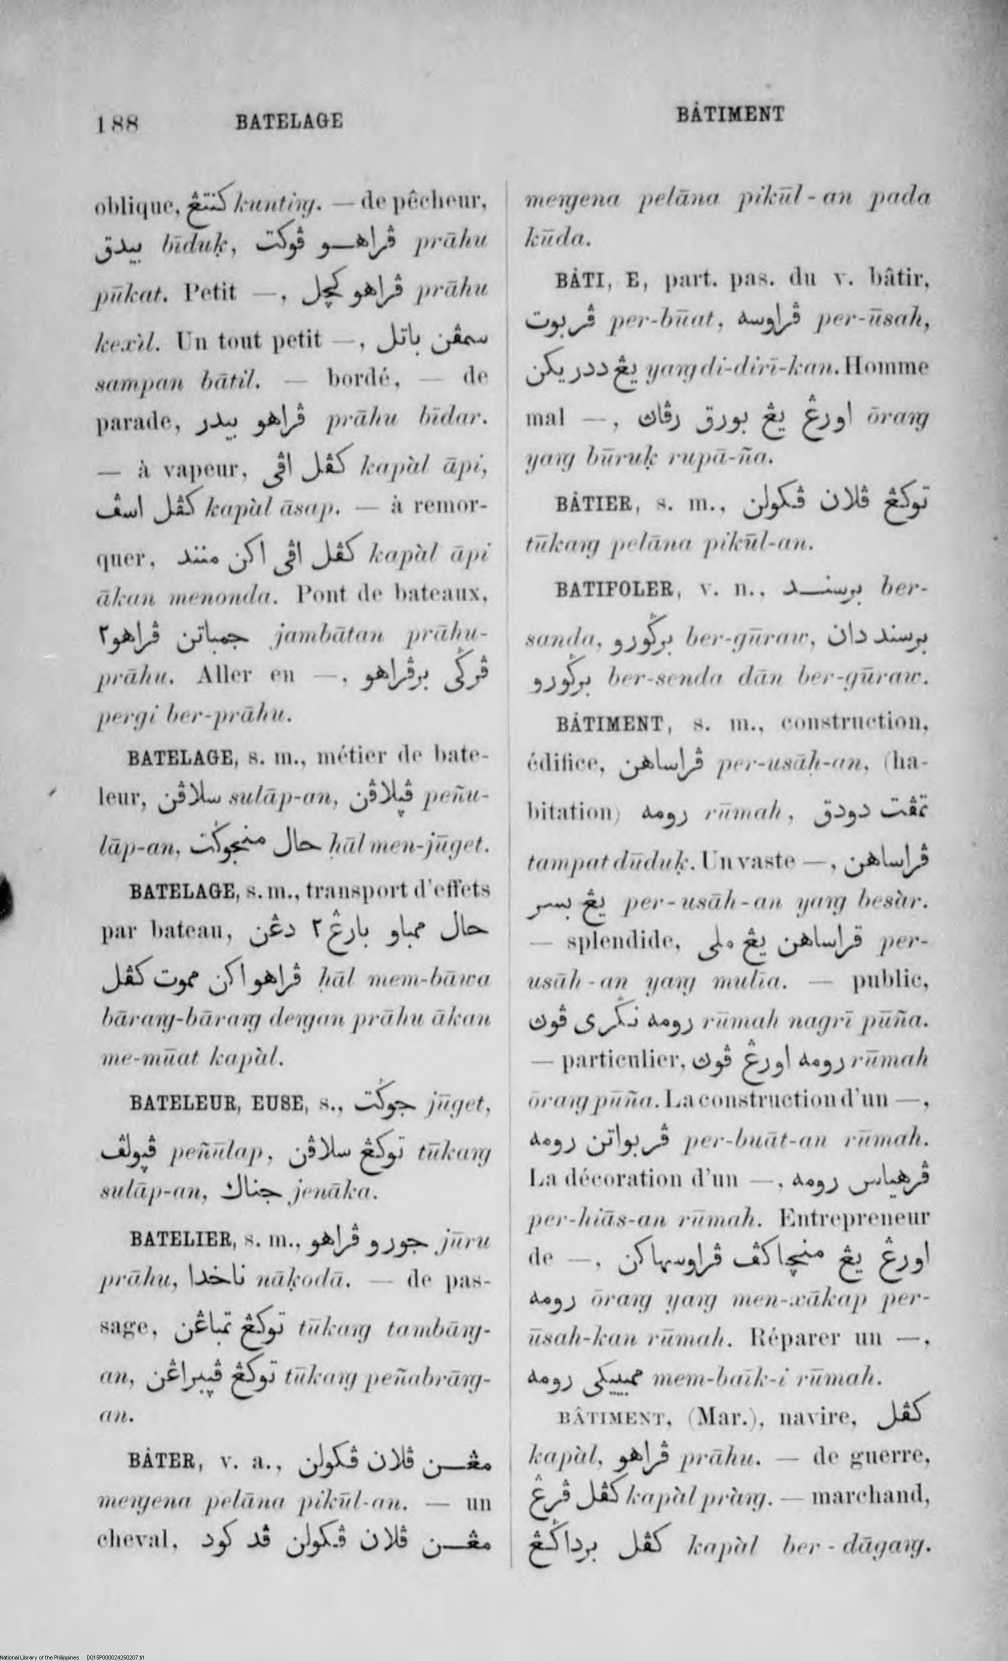 188 BATELAGE
BÂTIMENT
oblique, كنتڠ kuntiŋ. — de pêcheur,
بيدق bīduḳ, ڤراهو ڤوكت prāhu
pūkat. Petit —, ڤراهو كچل prāhu
kexìl. Un tout petit —, سمڤن باتل
sampan bātil. — bordé, — de
parade, ڤراهو بيدر prāhu bīdar.
— à vapeur, كڤل اڤي kapàl āpi,
كڤل اسڤ kapàl āsap. — à remor-
quer, كڤل اڤي اكن منند kapàl āpi
ākan menonda. Pont de bateaux,
جمباتن ڤراهو٢ jambātan prāhu-
prāhu. Aller en —, ڤرݢي برڤراهو
pergi ber-prāhu.
BATELAGE, s. m., métier de bate-
leur, سلاڤن sulāp-an, ڤڽلاڤن peñu-
lāp-an, حال منجوݢت ḥāl men-jūget.
BATELAGE, s. m., transport d'effets
par bateau, حال ممباو بارڠ٢ دڠن
ڤراهو اكن مموت كڤل ḥāl mem-bāwa
bāraŋ-bāraŋ deŋan prāhu ākan
me-mūat kapàl.
BATELEUR, EUSE, s., جوݢت jūget,
ڤڽولڤ peñūlap, توكڠ سلاڤن tūkaŋ
sulāp-an, جناك jenāka.
BATELIER, s. m., جورو ڤراهو jūru
prāhu, ناخدا nāḳodā. — de pas-
sage, توكڠ تمباڠن tūkaŋ tambāŋ-
an, توكڠ ڤڽبراڠن tūkaŋ peñabrāŋ-
an.
BÂTER, v. a., مڠن ڤلان ڤكولن
meŋena pelāna pikūl-an. — un
cheval, مڠن ڤلان ڤكولن ڤد كود
meŋena pelāna pikūl-an pada
kūda.
BÂTI, E, part. pas. du v. bâtir,
ڤربوت per-būat, ڤراوسه per-ūsah,
يڠ ددريكن yaŋ di-dirī-kan. Homme
mal —, اورڠ يڠ بورق رڤاڽ ōraŋ
yaŋ būruḳ rupā-ña.
BÂTIER, s. m., توكڠ ڤلان ڤكولن
tūkaŋ pelāna pikūl-an.
BATIFOLER, v. n., برسند ber-
sanda, برݢورو ber-gūraw, برسند دان
برݢورو ber-senda dān ber-gūraw.
BÂTIMENT, s. m., construction,
édifice, ڤراساهن per-usāḥ-an, (ha-
bitation) رومه rūmah, تمڤت دودق
tampat dūduḳ. Un vaste —, ڤراساهن
يڠ بسر per-usāh-an yaŋ besàr.
— splendide, ڤراساهن يڠ ملي per-
usāh-an yaŋ mulīa. — public,
رومه نݢري ڤوڽ rūmah nagrī pūña.
— particulier, رومه اورڠ ڤوڽ rūmah
ōraŋ pūña. La construction d'un —,
ڤربواتن رومه per-buāt-an rūmah.
La décoration d'un —, ڤرهياس رومه
per-hiās-an rūmah. Entrepreneur
de —, اورڠ يڠ منچاكڤ ڤراوسهاكن
رومه ōraŋ yaŋ men-xākap per-
ūsah-kan rūmah. Réparer un —,
ممبيكي رومه mem-baīk-i rūmah.
BÂTIMENT, (Mar.), navire, كڤل
kapàl, ڤراهو prāhu. — de guerre,
كڤل ڤرڠ kapàl pràŋ. — marchand,
كڤل برداݢڠ kapàl ber-dāgaŋ.
National Library of the Philippines DO15P000024250207.tif